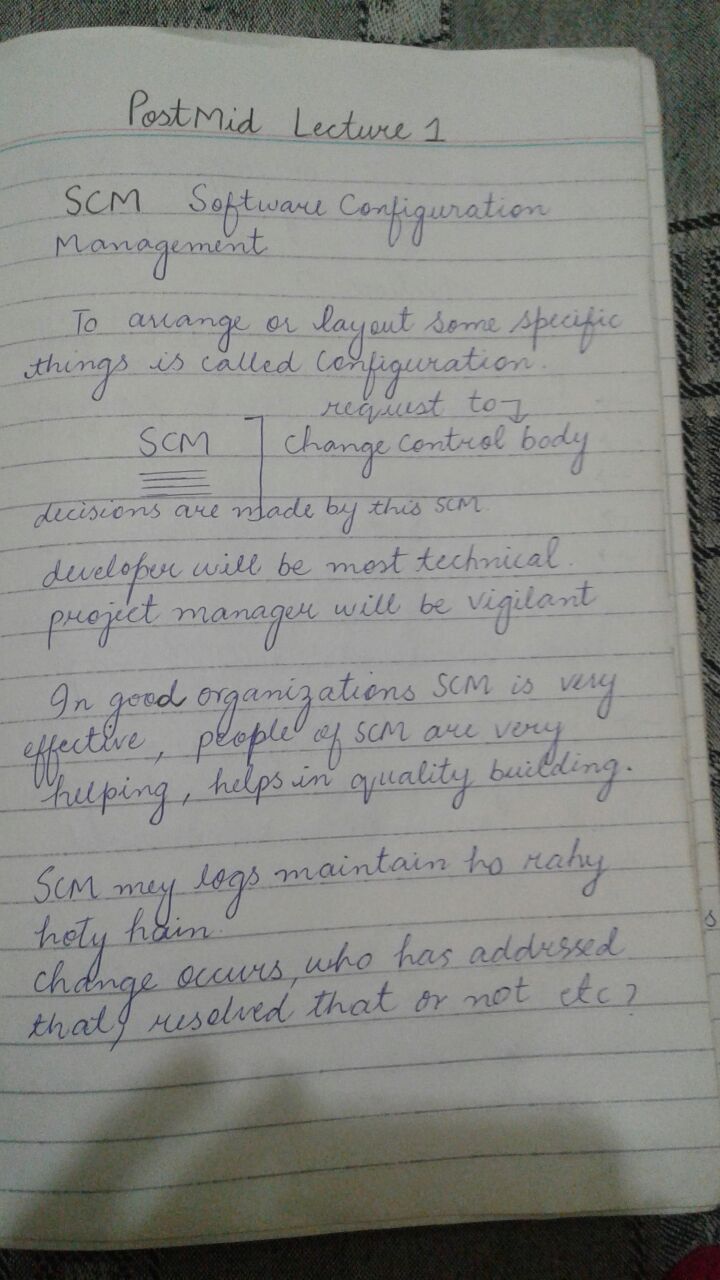 PostMid Lecture 1
SCM Software Configuration
Management
To arrange or layout some specific
things is called Configuration.
request to
SCM change control body
decisions are made by this SCM.
developer will be most technical.
project manager will be vigilant
In good organizations SCM is very
effective, people of SCM are very
helping, helps in quality building.
SCM mey logs maintain ho rahy
hoty hain.
change occurs, who has addressed
that, resolved that or not etc?
s